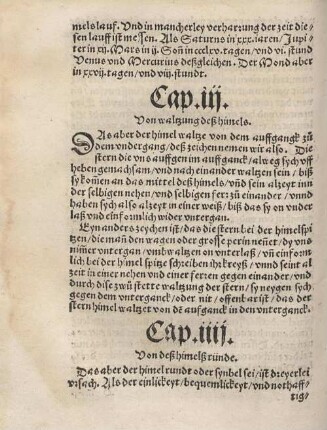 melslauf. Vnd in mancherley verharzung der zeit die-
sen laufft ist messen. Als Saturns in xxx. iaren/ Jupi-
ter in xij. Mars in ij. Soñ in ccclxv. tagen/ vnd vi. stund
Venus vnd Mercurius deßgleichen. Der Mond aber
in xxvij. tagen/ vnd viij. stundt.
Cap. iij.
Von waltzung deß himels.
DAs aber der himel waltze von dem auffgangk zů
dem vndergang/ deß zeichen nemen wir also. Die
stern die vns auffgen im auffganck/ alweg sych vff
heben gemachsam/ vnd nach einander waltzen sein/ biß
sy komen an das mittel deß himels/ vnd sein alzeyt inn
der selbigen nehen/ vnd selbigen ferr zů einander/ vnnd
haben sych also alzeyt in einer weiß/ biß das sy on vnder
laß vnd einformlich wider vntergan.
Eyn anders zeychen ist/ das die stern bei der himelspi-
tzen/ die man den wagen oder grosse perin nennet/ dy vns
nimmer vntergan/ vmbwaltzen on vnterlaß/ vñ einform
lich bei der himel spitze schreiben ihr kreyß/ vnnd seint al
zeit in einer nehen vnd einer ferren gegen einander/ vnd
durch dise zwů stette waltzung der stern/ sy neygen sych
gegen dem vnterganck/ oder nit/ offenbar ist/ das der
stern himel waltzet von dē aufganck in den vnterganck.
Cap. iiij.
Von deß himelß ründe.
Das aber der himel rundt oder synbel sei/ ist dreyerlei
vrsach. Als der einlickeyt/ bequemlickeyt/ vnd nothaff-
tig-